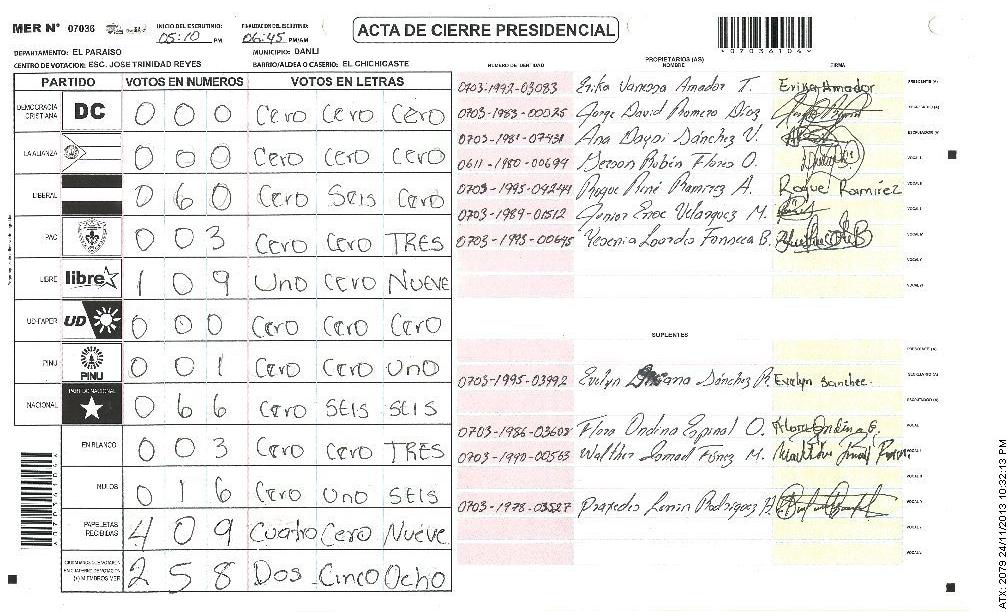 MER N° 07036
INICIO DEL ESCRUTINIO: 05:10 PM
FINALIZACION DEL ESCRUTINIO: 06:45 PM/AM
ACTA DE CIERRE PRESIDENCIAL
DEPARTAMENTO: EL PARAISO
MUNICIPIO: DANLI
CENTRO DE VOTACION: ESC. JOSE TRINIDAD REYES
BARRIO/ALDEA O CASERIO: EL CHICHICASTE
PARTIDO VOTOS EN NUMEROS VOTOS EN LETRAS
DEMOCRACIA CRISTIANA DC 0 0 0 Cero Cero Cero
LA ALIANZA 0 0 0 Cero Cero Cero
LIBERAL 0 6 0 Cero Seis Cero
PAC 0 0 3 Cero Cero TRES
LIBRE libre 1 0 9 Uno Cero NUEVE
UD-FAPER UD 0 0 0 Cero Cero Cero
PINU PINU 0 0 1 Cero Cero Uno
NACIONAL PARTIDO NACIONAL 0 6 6 Cero SEIS SEIS
EN BLANCO 0 0 3 Cero Cero TRES
NULOS 0 1 6 Cero Uno SEIS
PAPELETAS RECIBIDAS 4 0 9 Cuatro Cero Nueve
(+) MIEMBROS MER 2 5 8 Dos Cinco Ocho
NUMERO DE IDENTIDAD
PROPIETARIOS (AS)
NOMBRE
FIRMA
0703-1992-03083 Erika Vanessa Amador T. Erika Amador
0703-1983-00025 Jorge David Romero Diaz
0703-1981-07431 Ana Daysi Sánchez V.
0611-1980-00694 Gerson Rubén Flores O.
0703-1995-04244 Roque René Ramirez A. Roque Ramírez
0703-1989-01512 Junior Enoc Velasquez M.
0703-1995-00645 Yesenia Lourdes Fonseca B.
SUPLENTES
0703-1995-03992 Evelyn Sánchez P. Evelyn Sanchez.
0703-1986-03608 Flora Ondina Espinal O.
0703-1990-00563 Walther Ismael Fúnez M.
0703-1978-03527 Praxedes Lenin Rodriguez
ATX: 2079 24/11/2013 10:32:13 PM